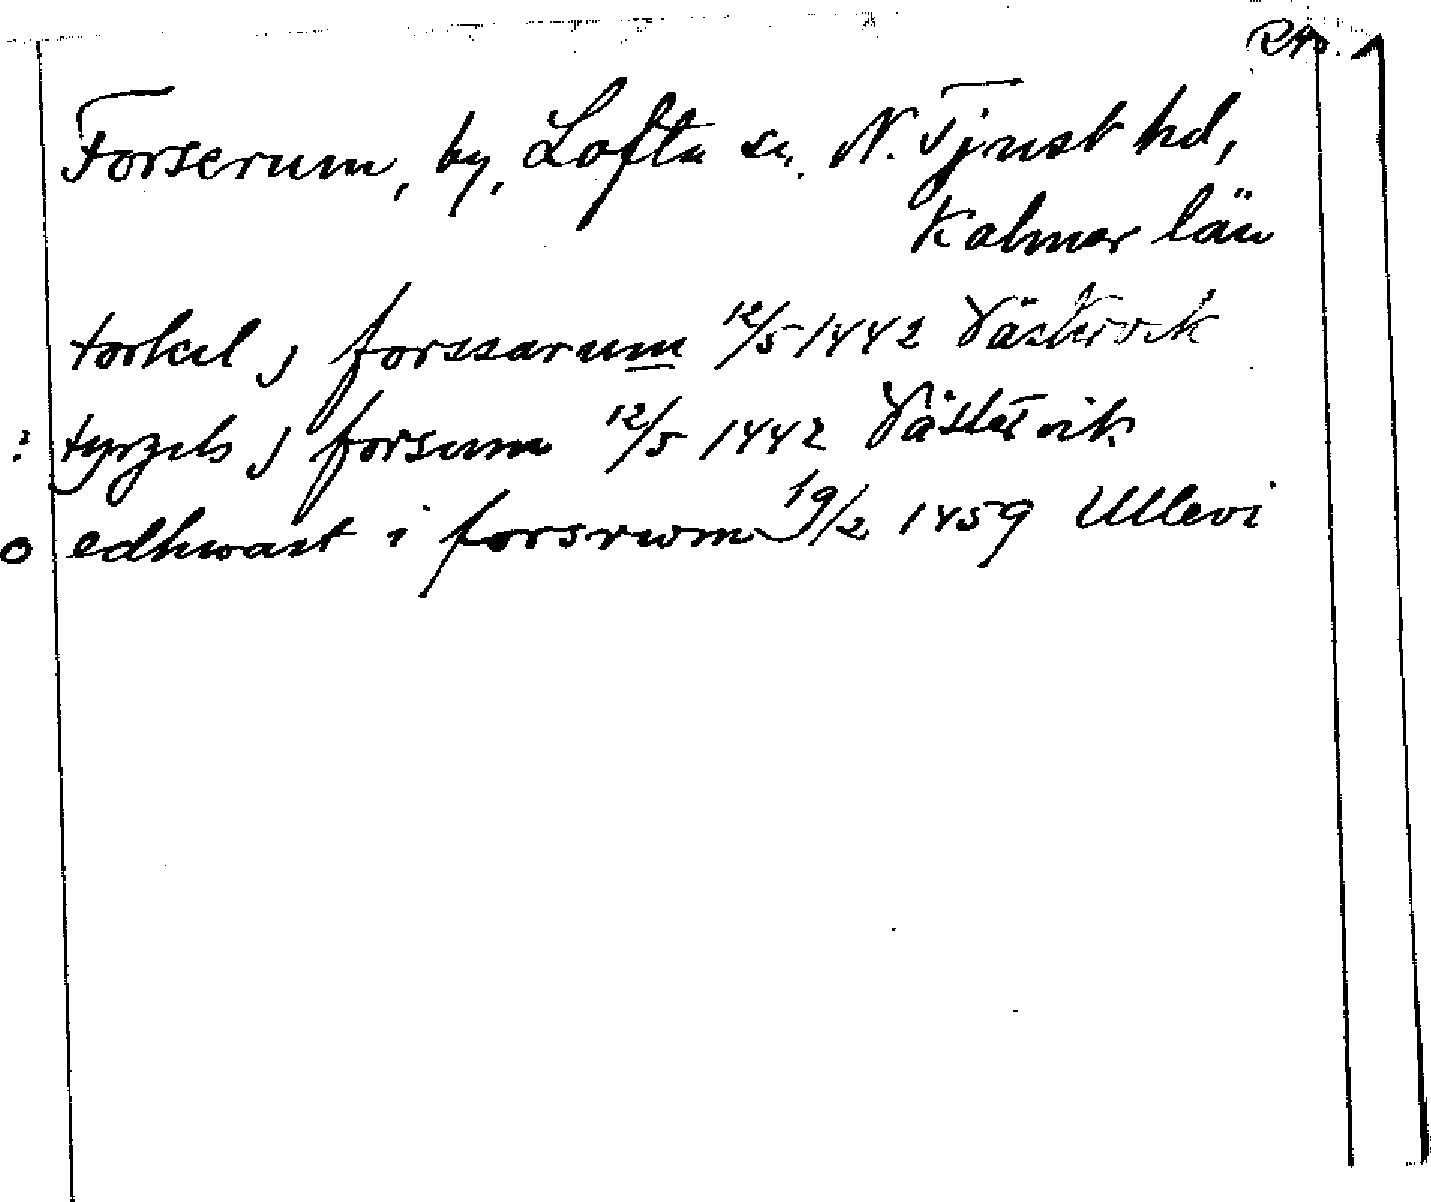 Forserum, by, Lofta sn. N. Tjust hd,
Kalmar län
torkel j forssarum 12/5 1442 Västervik
: tyrgils j forsum 12/5 1442 Västervik
o edhwart i forsrwm 19/2 1459 Ullevi